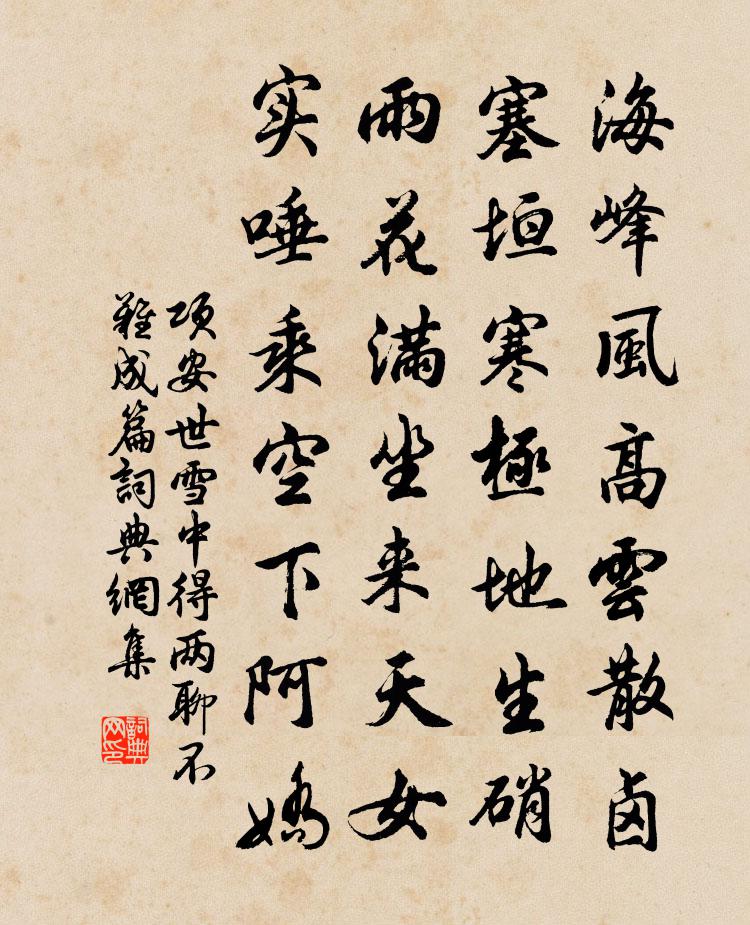 海峰風高雲散鹵
塞垣寒極地生硝
雨花滿坐来天女
实唾乘空下阿嬌
项安世雪中得两聊不
難成篇詞典網集
詞典網印